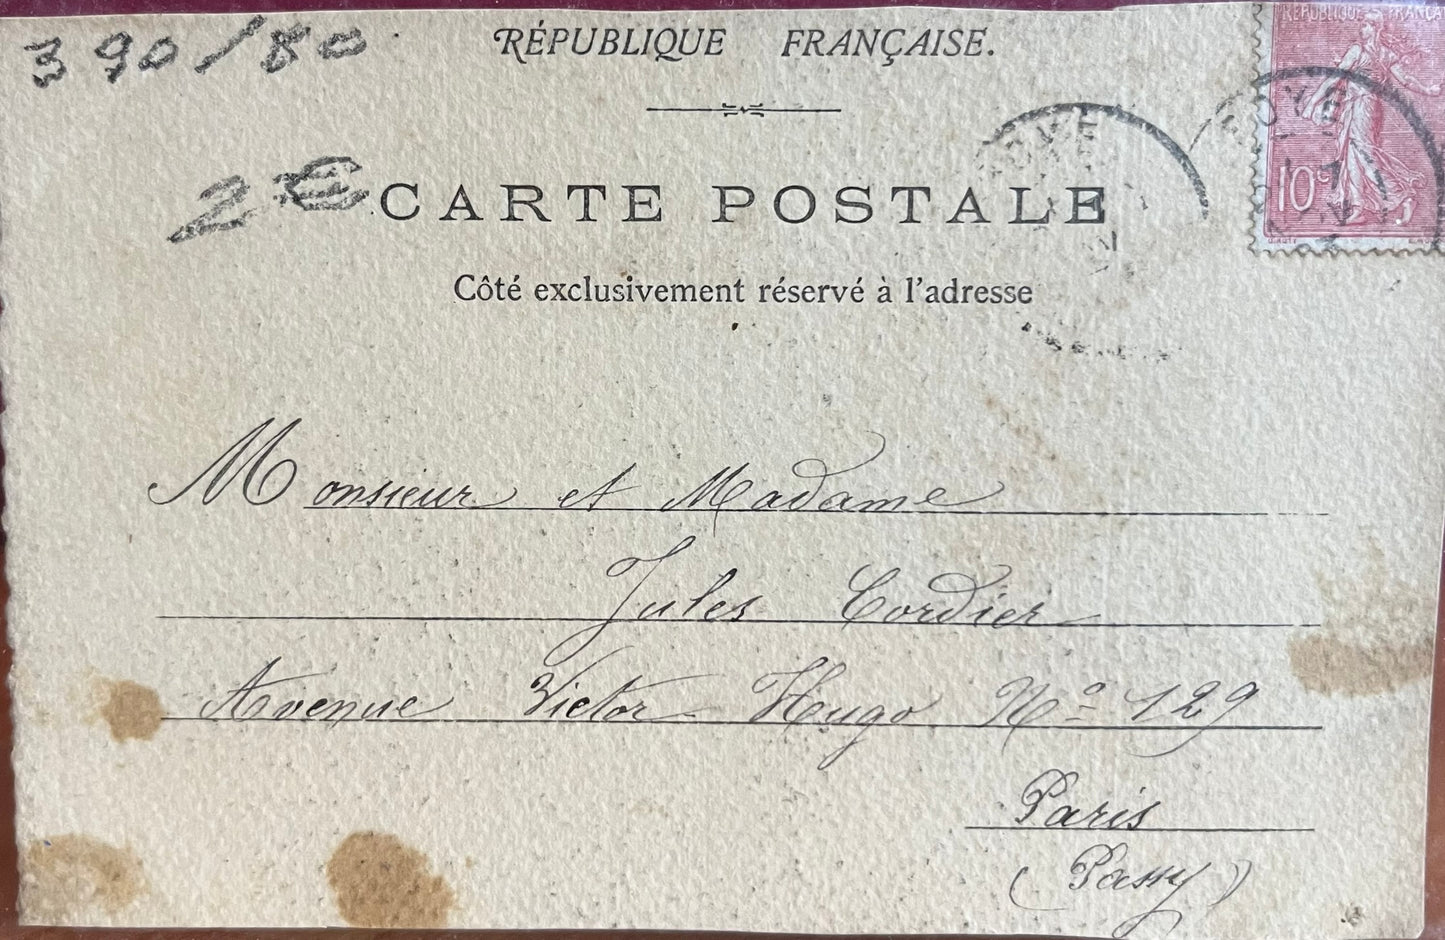 390/80
RÉPUBLIQUE FRANÇAISE.
RÉPUBLIQUE FRANÇA
10c
2€
CARTE POSTALE
Côté exclusivement réservé à l'adresse
Monsieur et Madame
Jules Cordier
Avenue Victor Hugo No 129
Paris
(Passy)